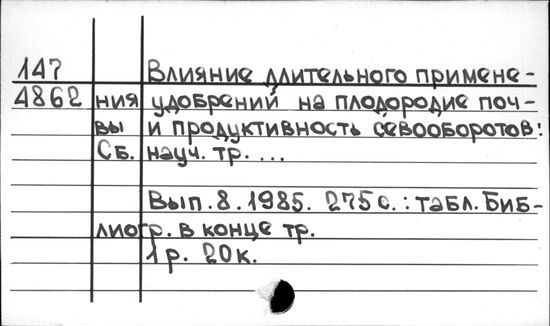 147 Влияние длительного примене-
4862 ния удобрений на плодородие поч-
вы и продуктивность севооборотов:
Сб. науч. тр. ...
Вып. 8. 1985. 275 с.: табл. Биб-
лиогр. в конце тр.
1 р. 20 к.